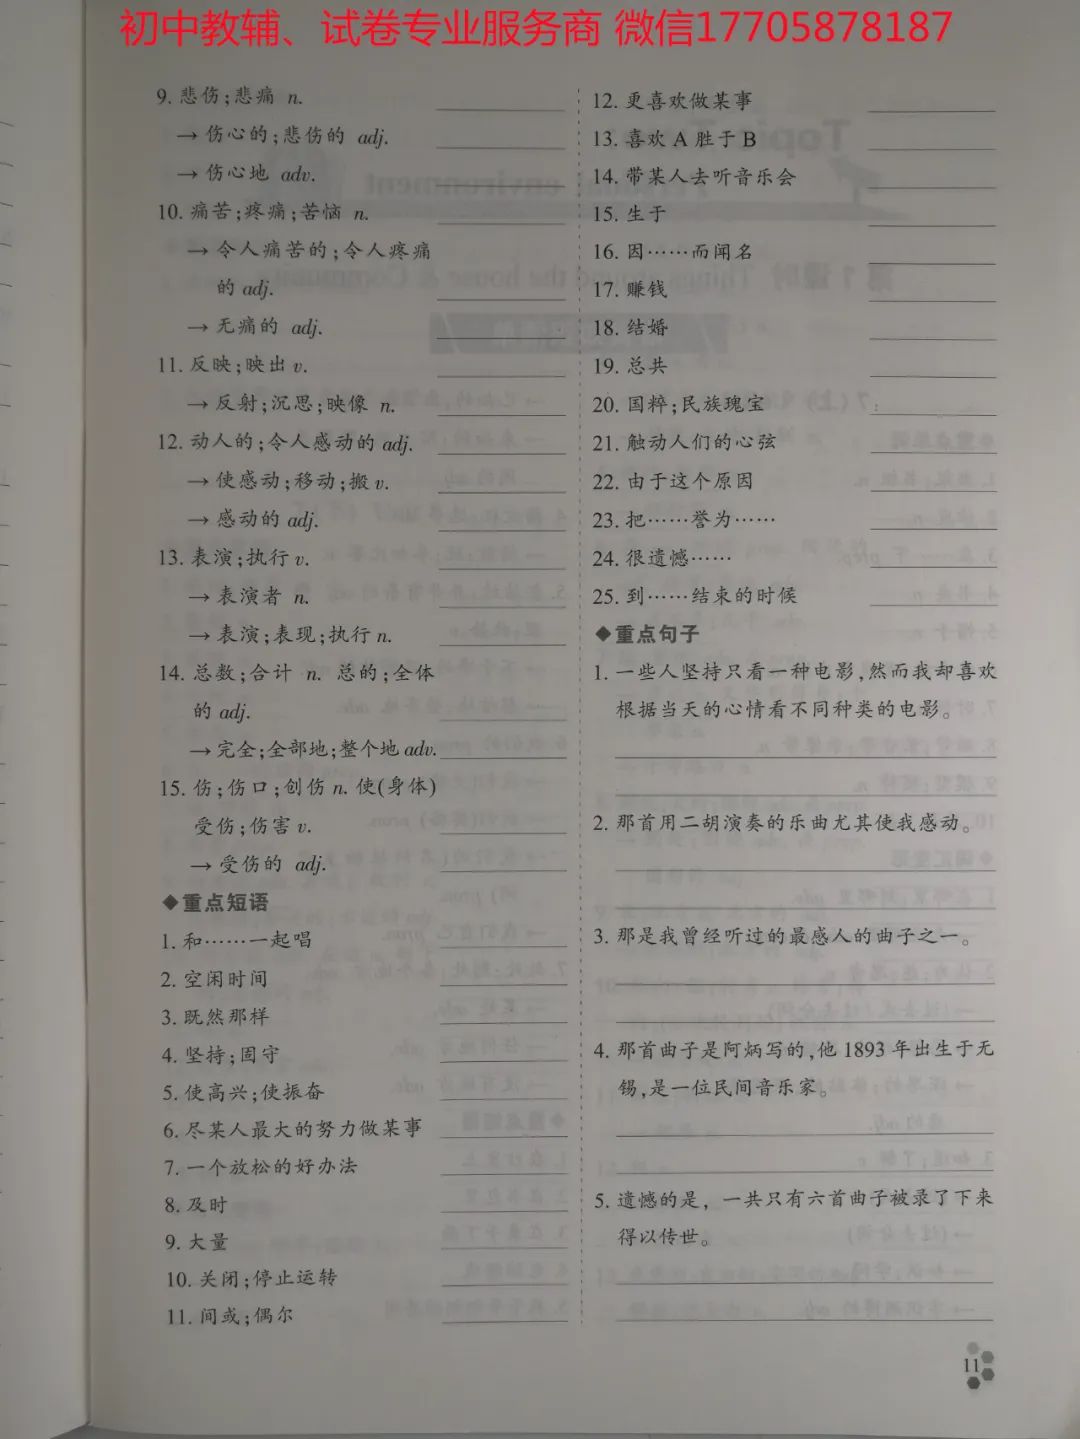 初中教辅、试卷专业服务商 微信17705878187
9. 悲伤;悲痛 n.
→ 伤心的;悲伤的 adj.
→ 伤心地 adv.
10. 痛苦;疼痛;苦恼 n.
→ 令人痛苦的;令人疼痛
的 adj.
→ 无痛的 adj.
11. 反映;映出 v.
→ 反射;沉思;映像 n.
12. 动人的;令人感动的 adj.
→ 使感动;移动;搬 v.
→ 感动的 adj.
13. 表演;执行 v.
→ 表演者 n.
→ 表演;表现;执行 n.
14. 总数;合计 n. 总的;全体
的 adj.
→ 完全;全部地;整个地 adv.
15. 伤;伤口;创伤 n. 使(身体)
受伤;伤害 v.
→ 受伤的 adj.
◆重点短语
1. 和……一起唱
2. 空闲时间
3. 既然那样
4. 坚持;固守
5. 使高兴;使振奋
6. 尽某人最大的努力做某事
7. 一个放松的好办法
8. 及时
9. 大量
10. 关闭;停止运转
11. 间或;偶尔
12. 更喜欢做某事
13. 喜欢 A 胜于 B
14. 带某人去听音乐会
15. 生于
16. 因……而闻名
17. 赚钱
18. 结婚
19. 总共
20. 国粹;民族瑰宝
21. 触动人们的心弦
22. 由于这个原因
23. 把……誉为……
24. 很遗憾……
25. 到……结束的时候
◆重点句子
1. 一些人坚持只看一种电影,然而我却喜欢
根据当天的心情看不同种类的电影。
2. 那首用二胡演奏的乐曲尤其使我感动。
3. 那是我曾经听过的最感人的曲子之一。
4. 那首曲子是阿炳写的,他 1893 年出生于无
锡,是一位民间音乐家。
5. 遗憾的是，一共只有六首曲子被录了下来
得以传世。
11